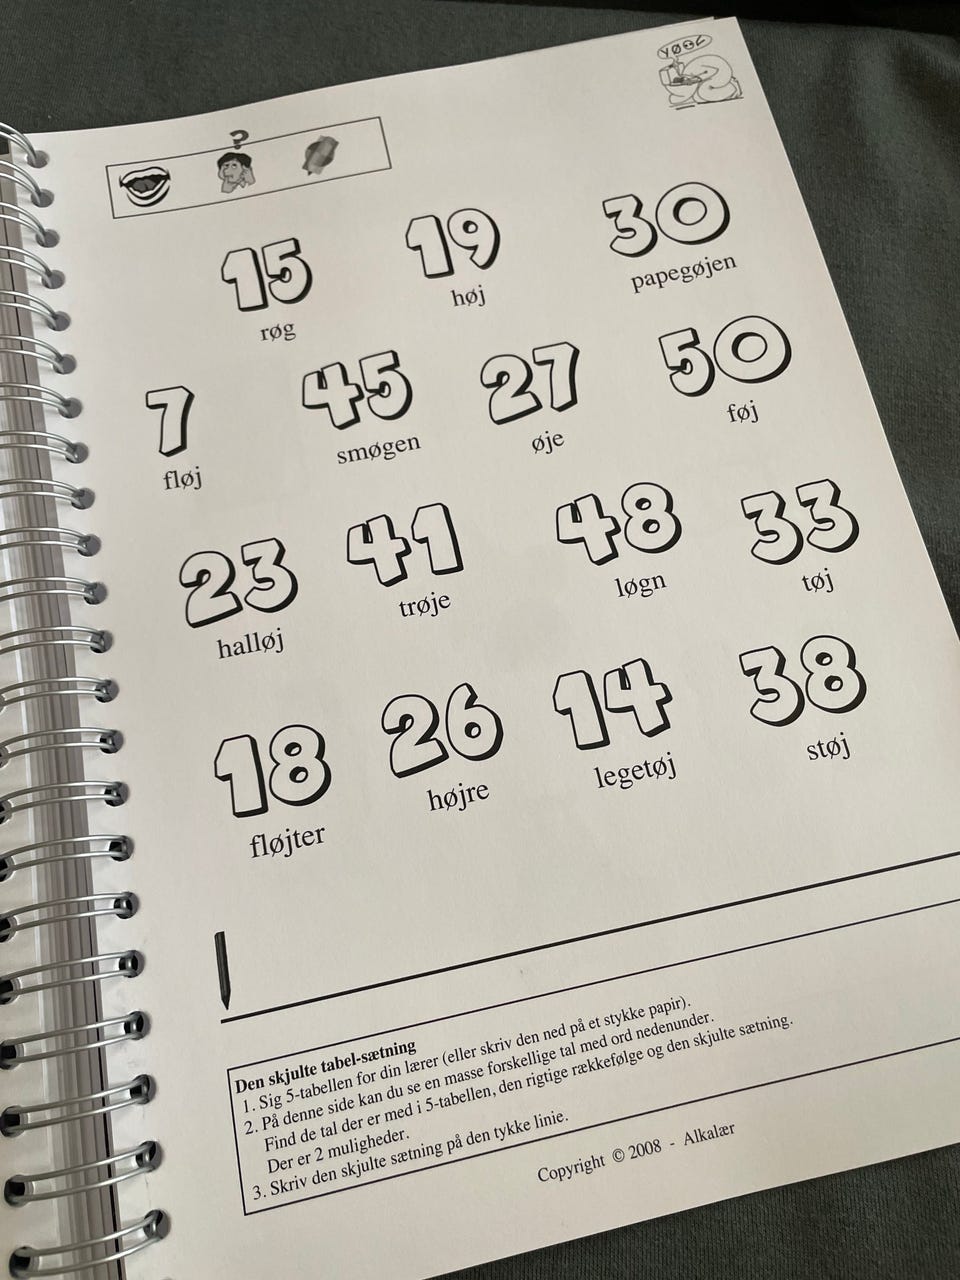 YØØL
?
15 19 30
røg høj papegøjen
7 45 27 50
fløj smøgen øje føj
23 41 48 33
halløj trøje løgn tøj
18 26 14 38
fløjter højre legetøj støj
Den skjulte tabel-sætning
1. Sig 5-tabellen for din lærer (eller skriv den ned på et stykke papir).
2. På denne side kan du se en masse forskellige tal med ord nedenunder.
Find de tal der er med i 5-tabellen, den rigtige rækkefølge og den skjulte sætning.
Der er 2 muligheder.
3. Skriv den skjulte sætning på den tykke linie.
Copyright © 2008 - Alkalær